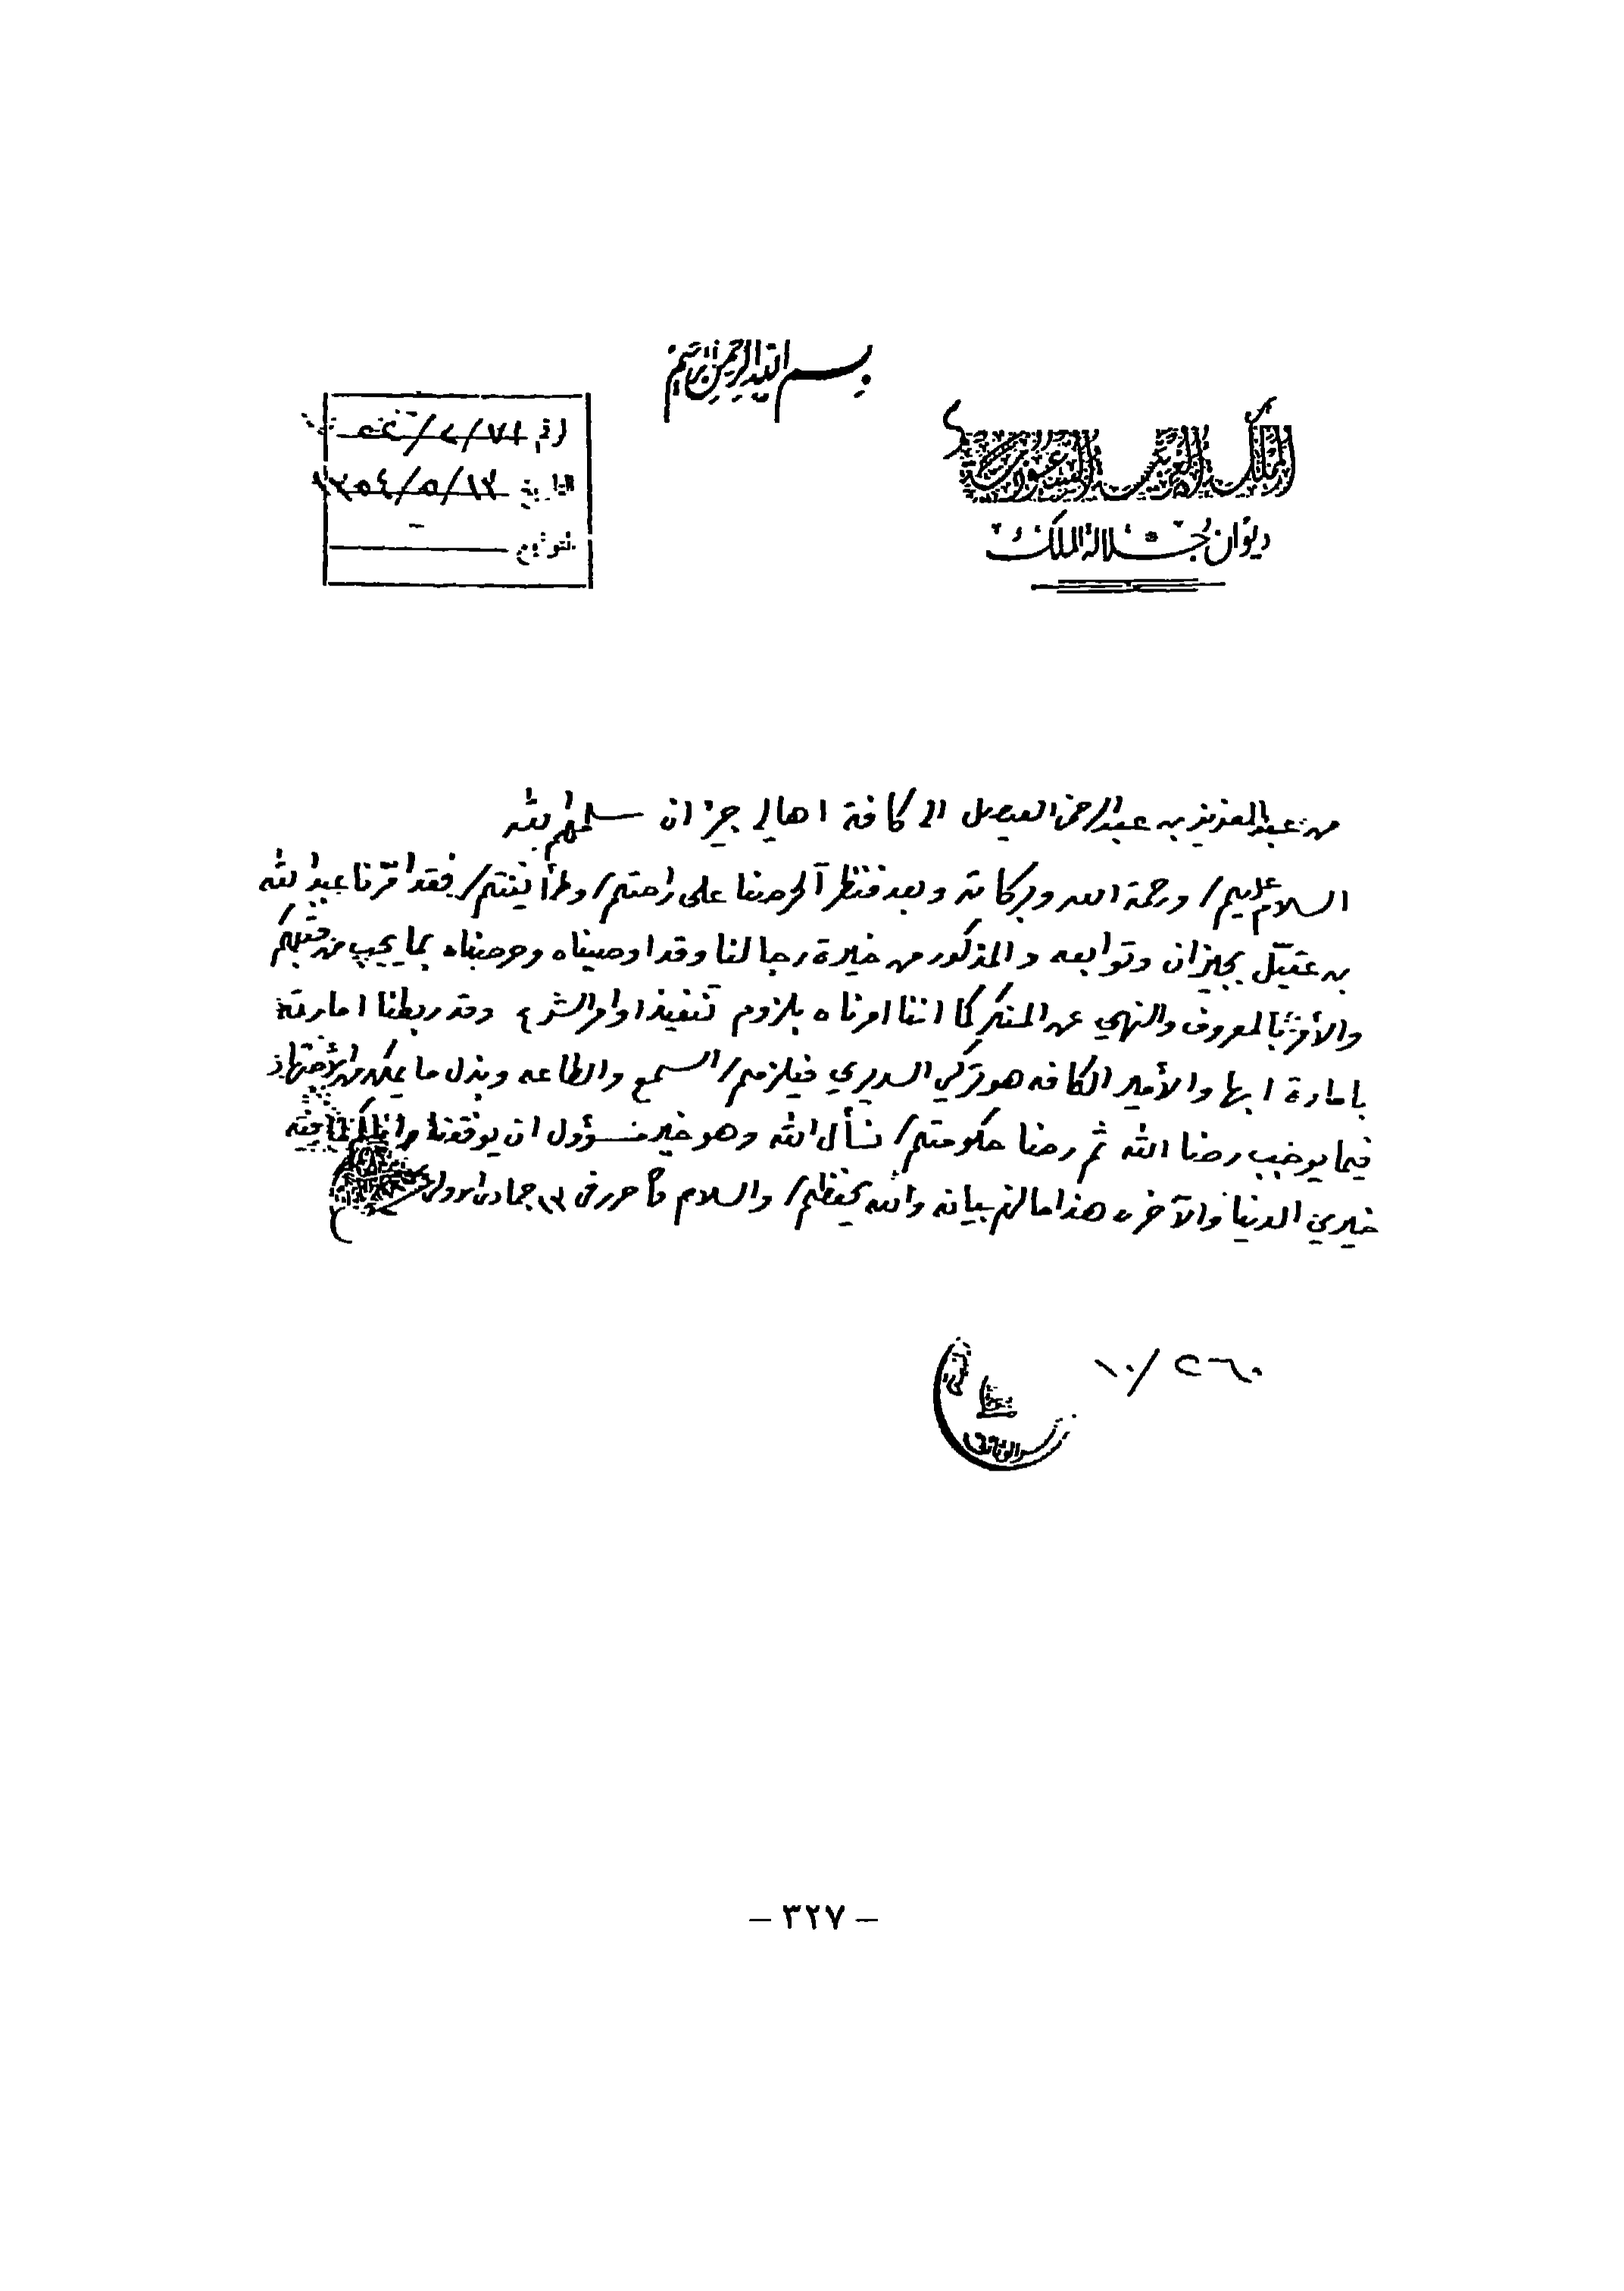 بسم الله الرحمن الرحيم
المملكة العربية السعودية
ديوان جلالة الملك
رقم ٧١/٢/
التاريخ ١٣٥٤/٥/١٣
من عبد العزيز بن عبد الرحمن الفيصل الى كافة اهالي جيزان سلمهم الله
السلام عليكم ورحمة الله وبركاته وبعد فنظرآ لحرصنا على راحتكم وطمأنينتكم فقد امّرنا عبد الله
بن عقيّل بجيزان وتوابعه والمذكور من خيرة رجالنا وقد اوصيناه وحرصناه بما يجب من قبلكم
والأمر بالمعروف والنهي عن المنكر كما اننا امرناه بلزوم تنفيذ اوامر الشرع وقد ربطنا امارته
بامارة ابها والأمير الكافه هو تركي السديري فيلزمكم السمع والطاعه وبذل ما يمكن من الأجتهاد
فيما يوجب رضا الله ثم رضا حكومتكم نسأل الله وهو خير مسؤول ان يوفقنا واياكم لما فيه
خيري الدنيا والآخره هذا ما لزم بيانه والله يحفظكم والسلام حرر في ١٣ جمادى الاولى
١٠/٢٦٠
الوثائق
– ٣٢٧ –